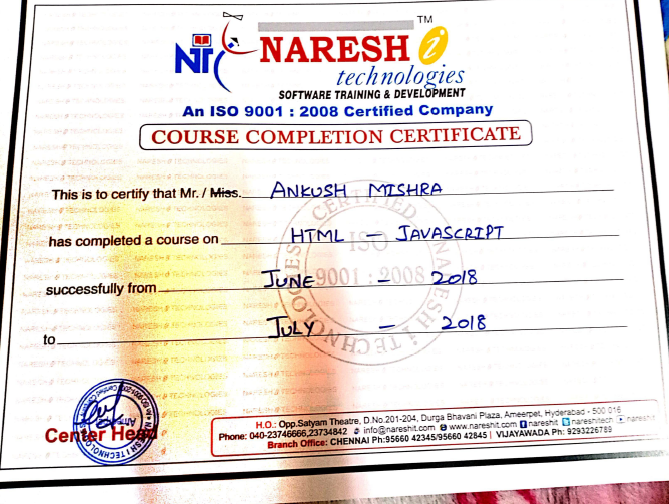 NIT NARESH i TM
technologies
SOFTWARE TRAINING & DEVELOPMENT
An ISO 9001 : 2008 Certified Company
COURSE COMPLETION CERTIFICATE
This is to certify that Mr. / Miss. ANKUSH MISHRA
has completed a course on HTML - JAVASCRIPT
successfully from JUNE - 2018
to JULY - 2018
CERTIFIED
ISO
9001 : 2008
NARESH i TECHNOLOGIES
Center Head
H.O.: Opp.Satyam Theatre, D.No.201-204, Durga Bhavani Plaza, Ameerpet, Hyderabad - 500 016
Phone: 040-23746666,23734842 info@nareshit.com www.nareshit.com nareshit nareshitech nareshit
Branch Office: CHENNAI Ph:95660 42345/95660 42845 | VIJAYAWADA Ph: 9293226789